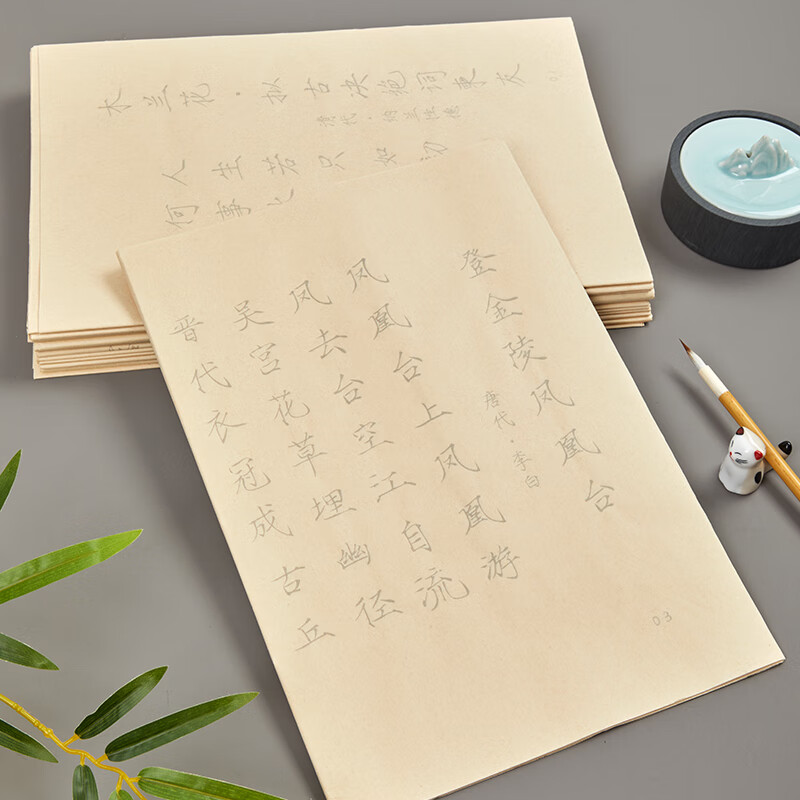 登金陵凤凰台
唐代·李白
凤凰台上凤凰游
凤去台空江自流
吴宫花草埋幽径
晋代衣冠成古丘
03
木兰花·拟古决绝词柬友
清代·纳兰性德
人生若只如初
何事